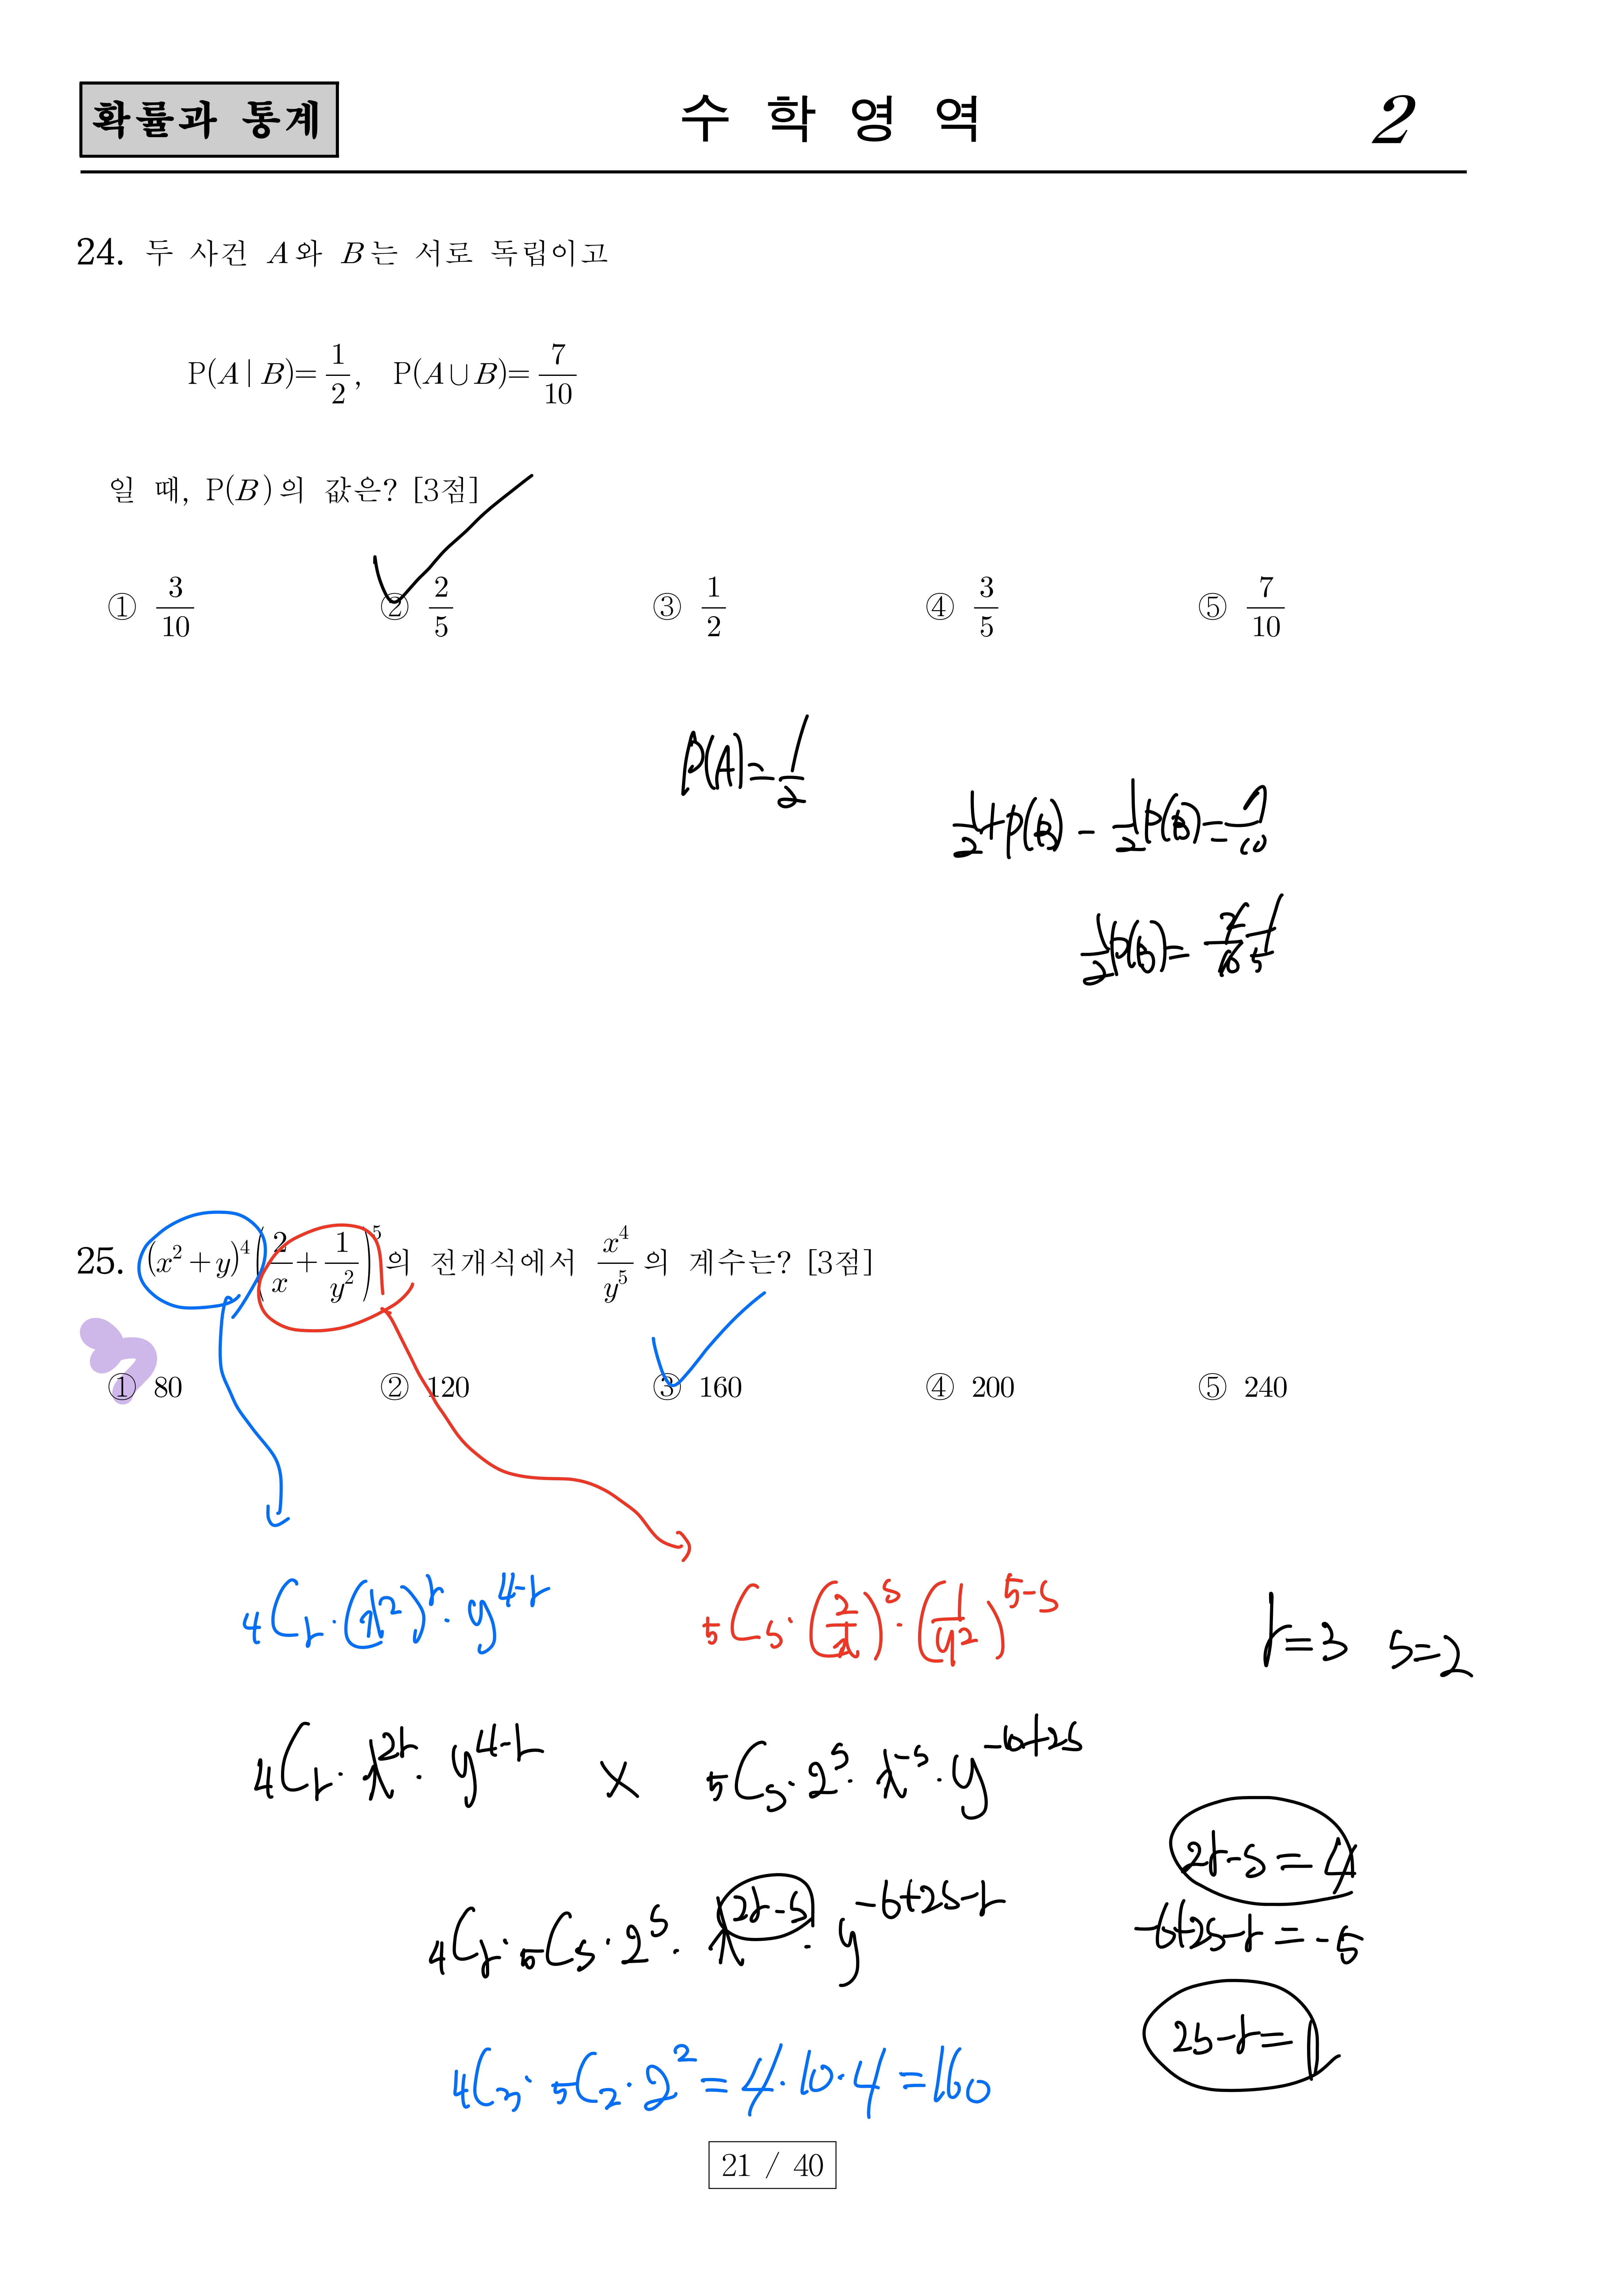 확률과 통계
수 학 영 역
2
24. 두 사건 A와 B는 서로 독립이고
P(A|B)=1/2, P(A∪B)=7/10
일 때, P(B)의 값은? [3점]
① 3/10 ② 2/5 ③ 1/2 ④ 3/5 ⑤ 7/10
P(A)=1/2
1/2+P(B)-1/2P(B)=7/10
1/2P(B)=2/10 1/5
25. (x²+y)⁴(2/x+1/y²)⁵의 전개식에서 x⁴/y⁵의 계수는? [3점]
① 80 ② 120 ③ 160 ④ 200 ⑤ 240
₄Cᵣ·(x²)^r·y^(4-r) ₅Cₛ·(2/x)^s·(1/y²)^(5-s)
r=3 s=2
₄Cᵣ·x^(2r)·y^(4-r) × ₅Cₛ·2^s·x^(-s)·y^(-10+2s)
2r-s=4
₄Cᵣ·₅Cₛ·2^s·x^(2r-s)·y^(-6+2s-r)
-6+2s-r=-5
2s-r=1
₄C₃·₅C₂·2²=4·10·4=160
21 / 40